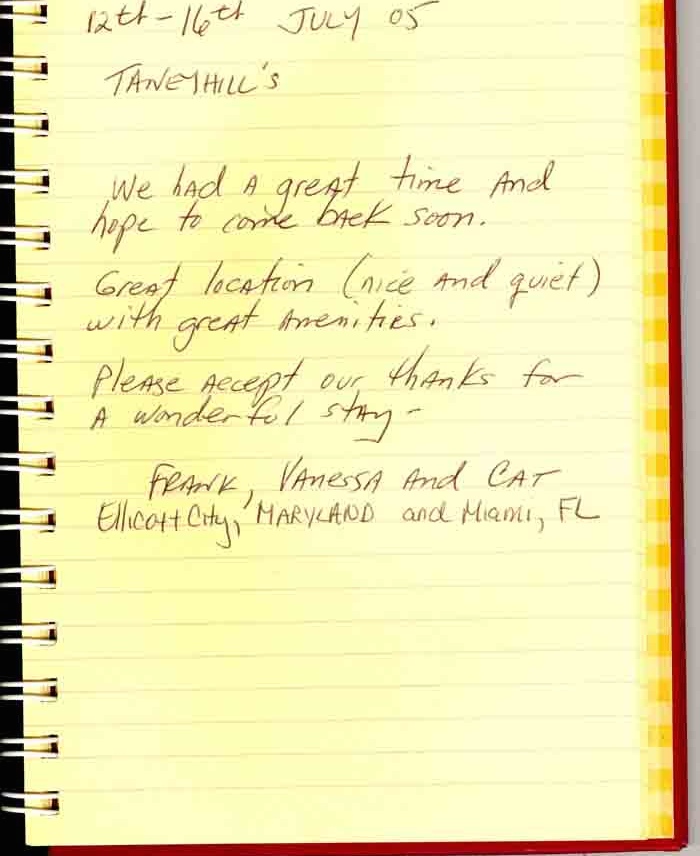 12th - 16th JULY 05
TANEYHILL's
We had A great time And
hope to come back soon.
Great location (nice and quiet)
with great Amenities.
Please Accept our thanks for
A wonderful stay -
FRANK, VANESSA And CAT
Ellicott City, MARYLAND and Miami, FL